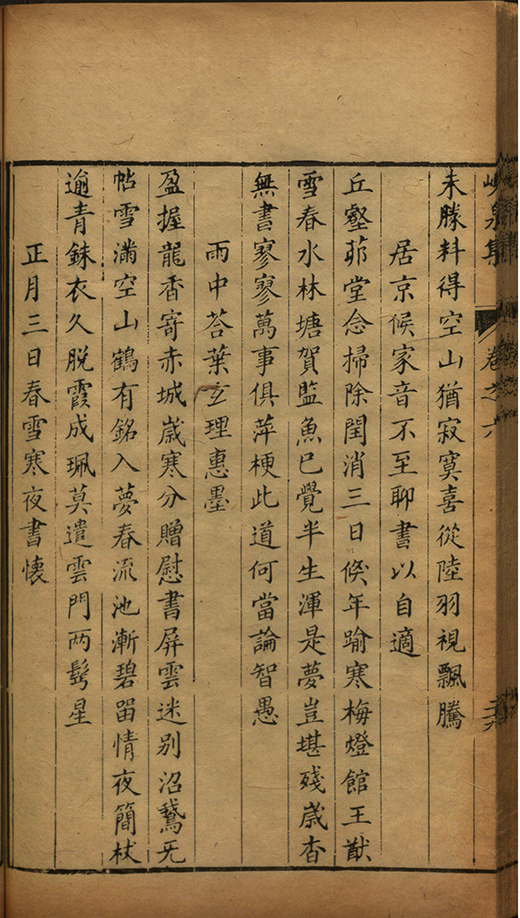 峴泉集 卷之六
未勝料得空山猶寂寞喜從陸羽視飄騰
居京候家音不至聊書以自適
丘壑茆堂念掃除閏消三日倏年踰寒梅燈館王猷
雪春水林塘賀監魚已覺半生渾是夢豈堪殘歲杳
無書寥寥萬事俱萍梗此道何當論智愚
雨中荅葉玄理惠墨
盈握龍香寄赤城歲寒分贈慰書屏雲迷別沼鵞无
帖雪滿空山鶴有銘入夢春流池漸碧畱情夜簡杖
逾青銖衣久脫霞成珮莫遣雲門两髩星
正月三日春雪寒夜書懷